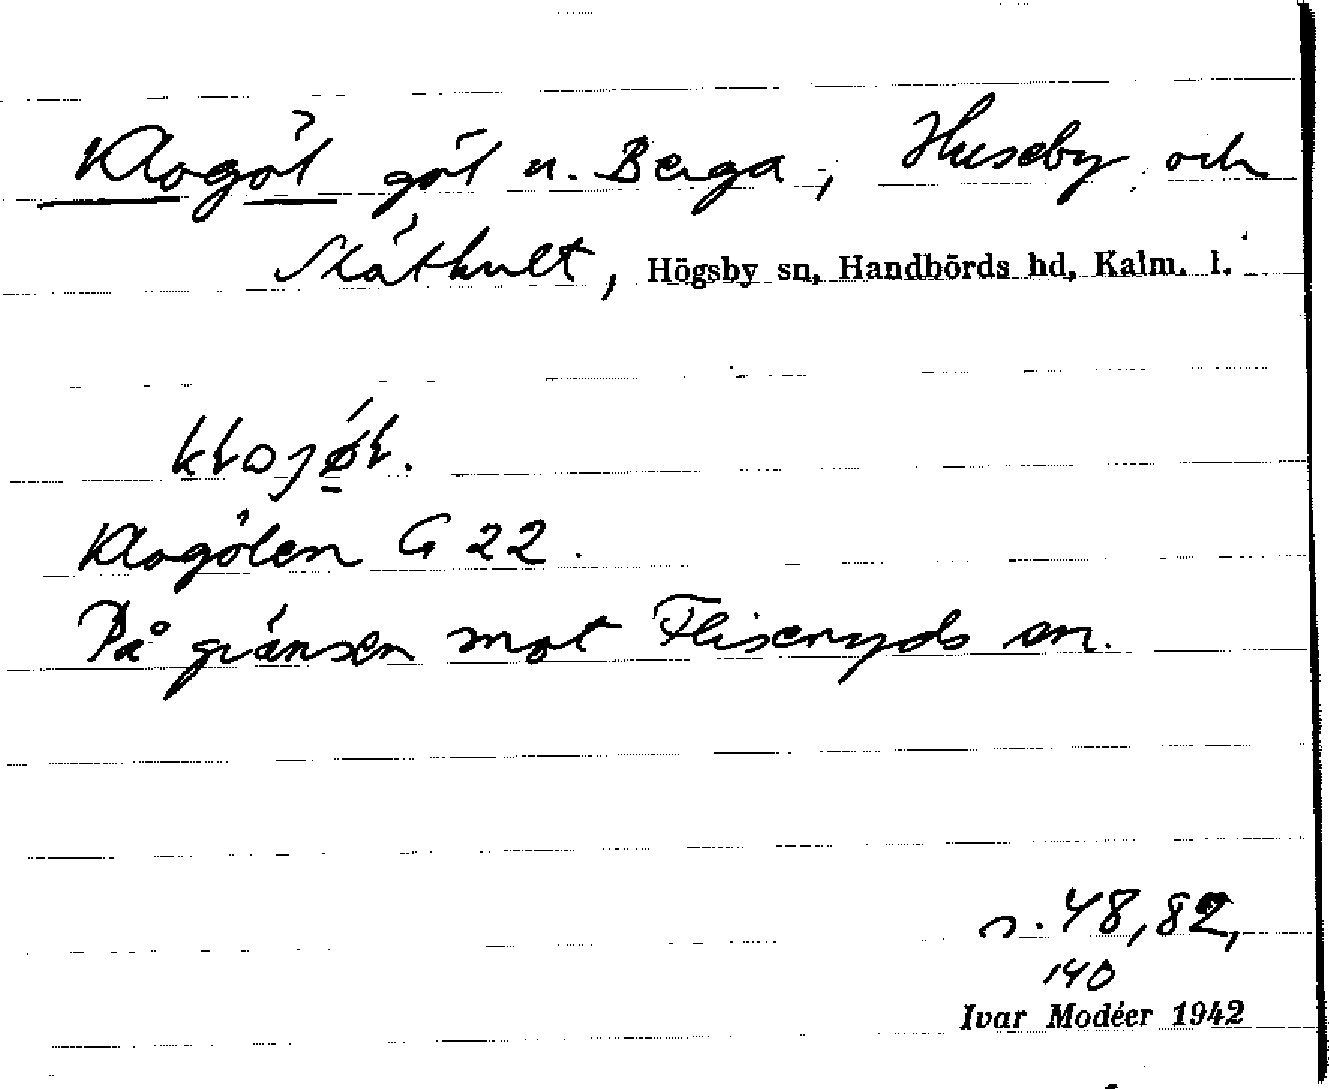 Klogöl göl u. Berga, Huseby och
Skåtkult, Högsby sn, Handbörds hd, Kalm. l.
Klogölen G 22.
På gränsen mot Fliseryds sn.
s. 48, 82,
140
Ivar Modéer 1942